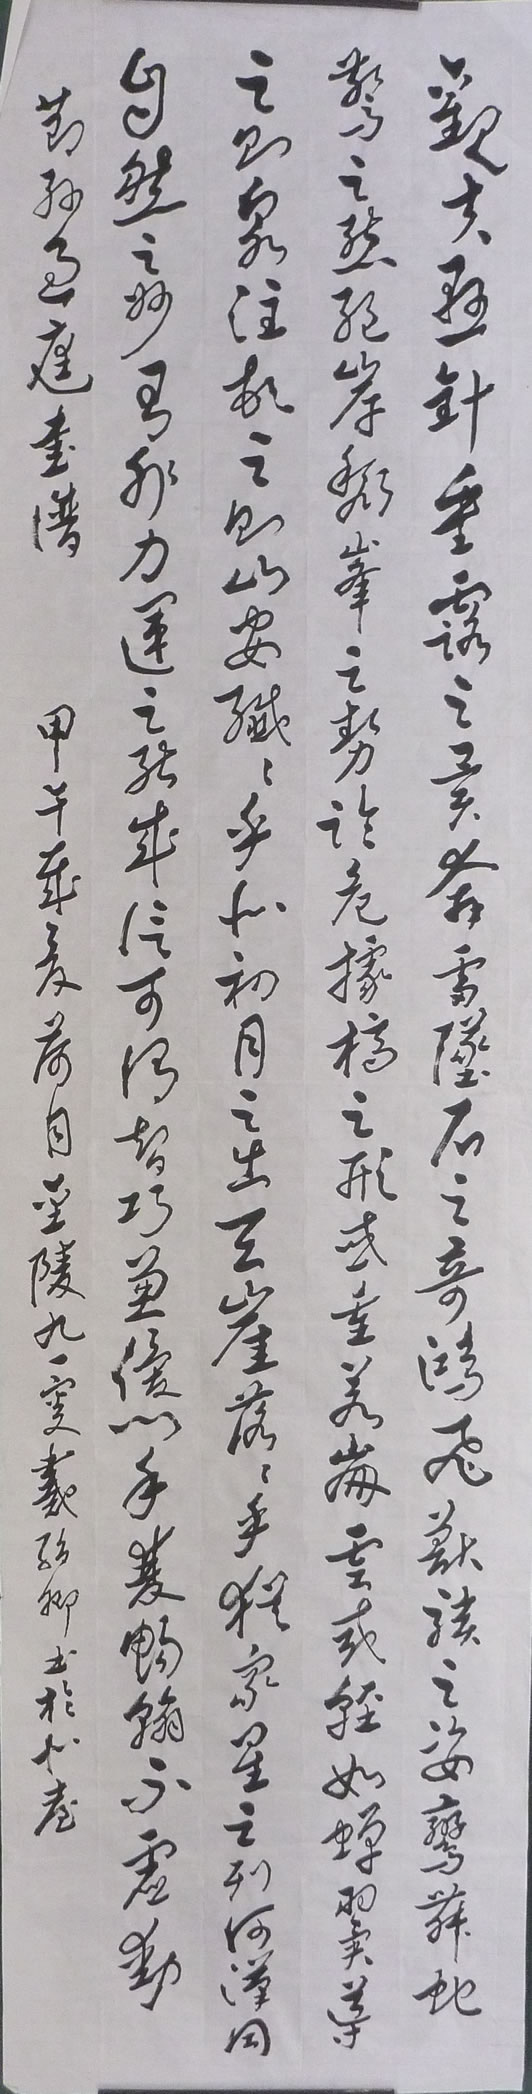 觀夫懸針垂露之異奔雷墜石之奇鴻飛獸駭之姿鸞舞蛇
驚之態絕岸頹峯之勢臨危據槁之形或重若崩雲或輕如蟬翼導
之則泉注頓之則山安纖〻乎似初月之出天崖落〻乎猶眾星之列河漢同
自然之妙有非力運之能成信可謂智巧兼優心手雙暢翰不虛動
節孫過庭書譜 甲午歲夏荷月金陵九一叟戴 卿書於